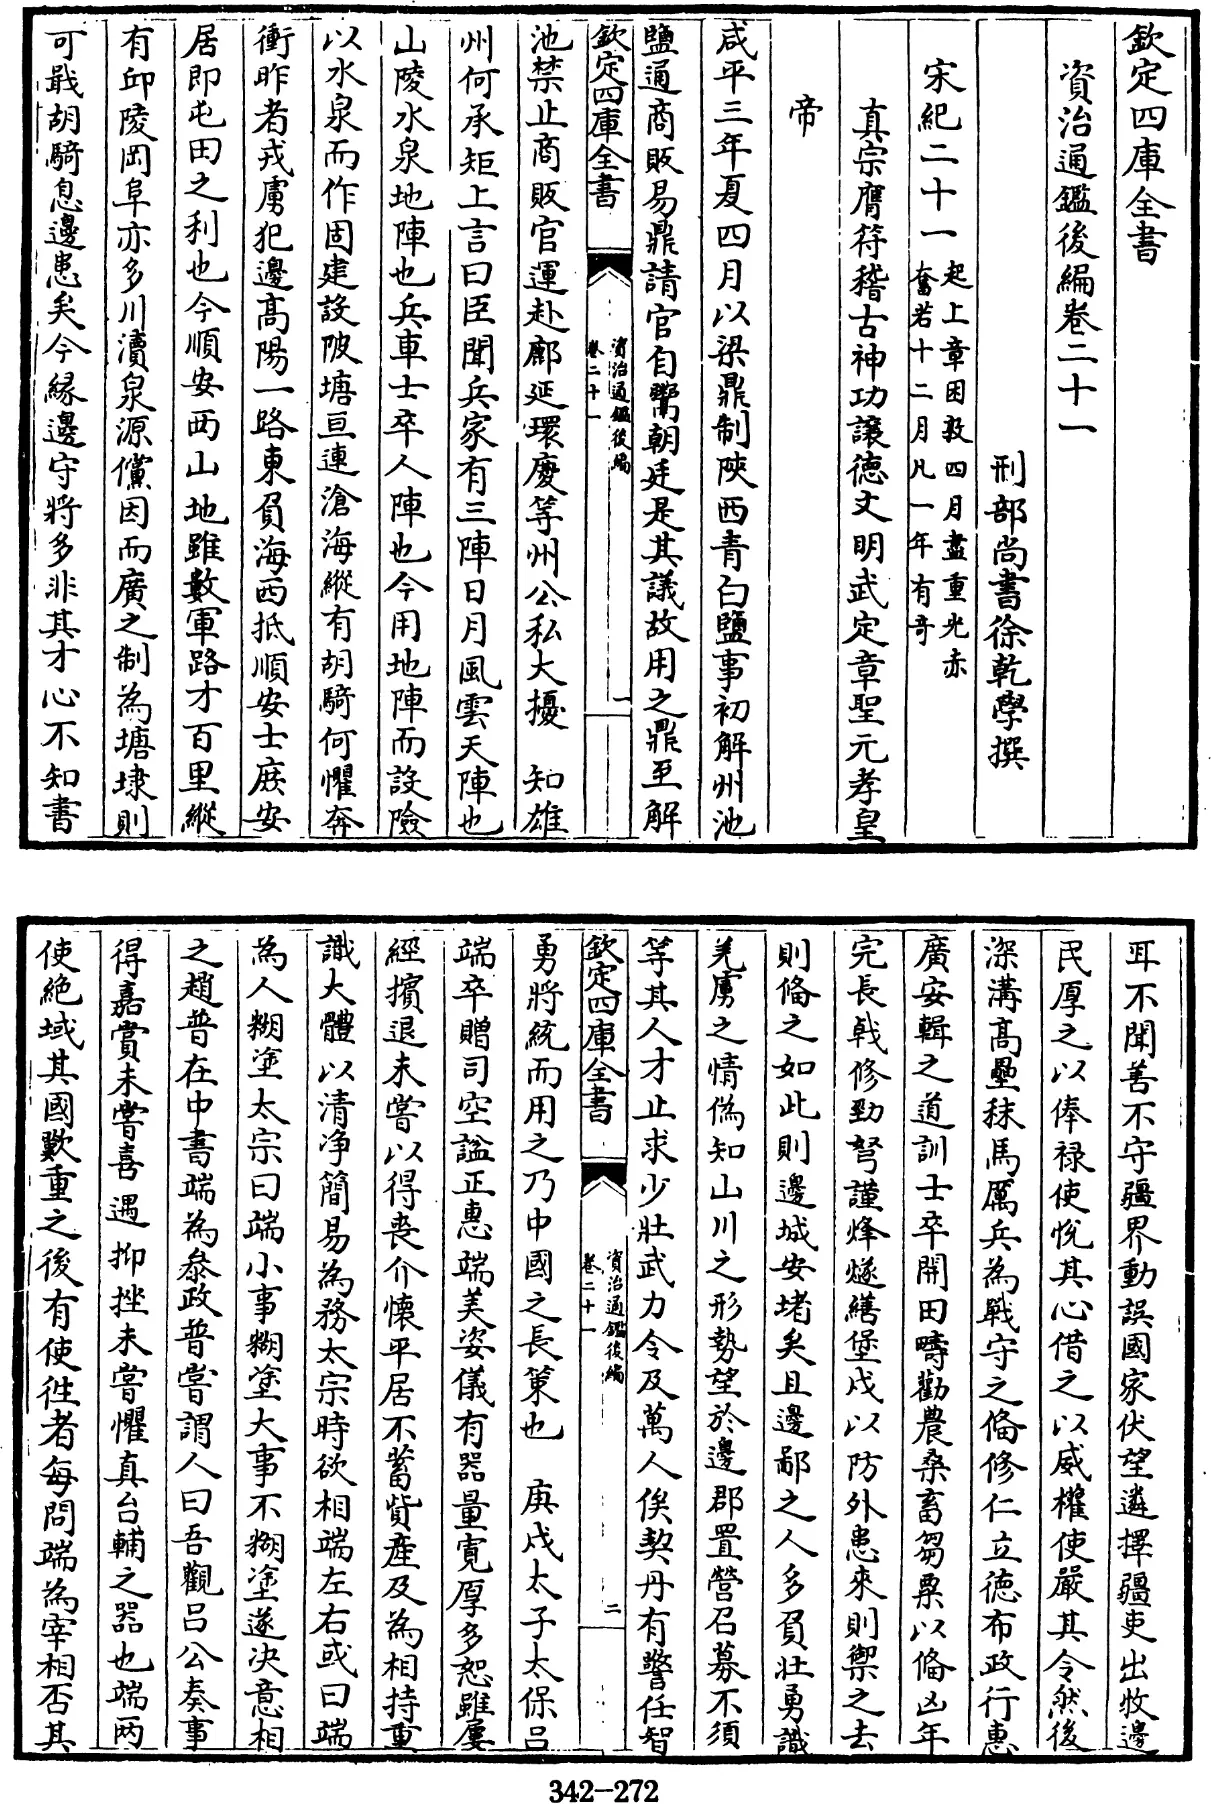 欽定四庫全書
資治通鑑後編卷二十一
刑部尚書徐乾學撰
宋紀二十一起上章困敦四月盡重光赤
奮若十二月凡一年有奇
真宗膺符稽古神功讓德文明武定章聖元孝皇
帝
咸平三年夏四月以梁鼎制陜西青白鹽事初解州池
鹽通商販易鼎請官自鬻朝廷是其議故用之鼎至解
欽定四庫全書
資治通鑑後編
卷二十一
一
池禁止商販官運赴鄜延環慶等州公私大擾 知雄
州何承矩上言曰臣聞兵家有三陣日月風雲天陣也
山陵水泉地陣也兵車士卒人陣也今用地陣而設險
以水泉而作固建設陂塘亘連滄海縱有胡騎何懼奔
衝昨者戎虜犯邊高陽一路東負海西抵順安士庶安
居即屯田之利也今順安西山地雖數軍路才百里縱
有邱陵岡阜亦多川瀆泉源儻因而廣之制為塘埭則
可戢胡騎息邊患矣今縁邊守將多非其才心不知書
耳不聞善不守疆界動誤國家伏望遴擇疆吏出牧邊
民厚之以俸禄使悅其心借之以威權使嚴其令然後
深溝高壘秣馬厲兵為戰守之備修仁立德布政行惠
廣安輯之道訓士卒開田疇勸農桑畜芻粟以備凶年
完長戟修勁弩謹烽燧繕堡戍以防外患來則禦之去
則備之如此則邊城安堵矣且邊鄙之人多負壯勇識
羌虜之情偽知山川之形勢望於邊郡置營召募不須
等其人才止求少壯武力令及萬人俟契丹有警任智
欽定四庫全書
資治通鑑後編
卷二十一
二
勇將統而用之乃中國之長策也 庚戌太子太保吕
端卒贈司空諡正惠端美姿儀有器量寛厚多恕雖屢
經擯退未嘗以得喪介懷平居不蓄貲產及為相持重
識大體以清净簡易為務太宗時欲相端左右或曰端
為人糊塗太宗曰端小事糊塗大事不糊塗遂决意相
之趙普在中書端為參政普嘗謂人曰吾觀吕公奏事
得嘉賞未嘗喜遇抑挫未嘗懼真台輔之器也端兩
使絶域其國歎重之後有使往者每問端為宰相否其
342-272